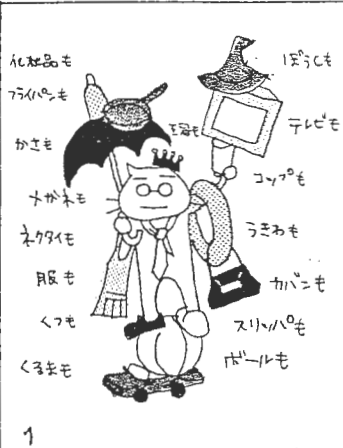 化粧品も
フライパンも
かさも
メガネも
ネクタイも
服も
くつも
くるまも
王冠も
ぼうしも
テレビも
コップも
うきわも
カバンも
スリッパも
ボールも
1